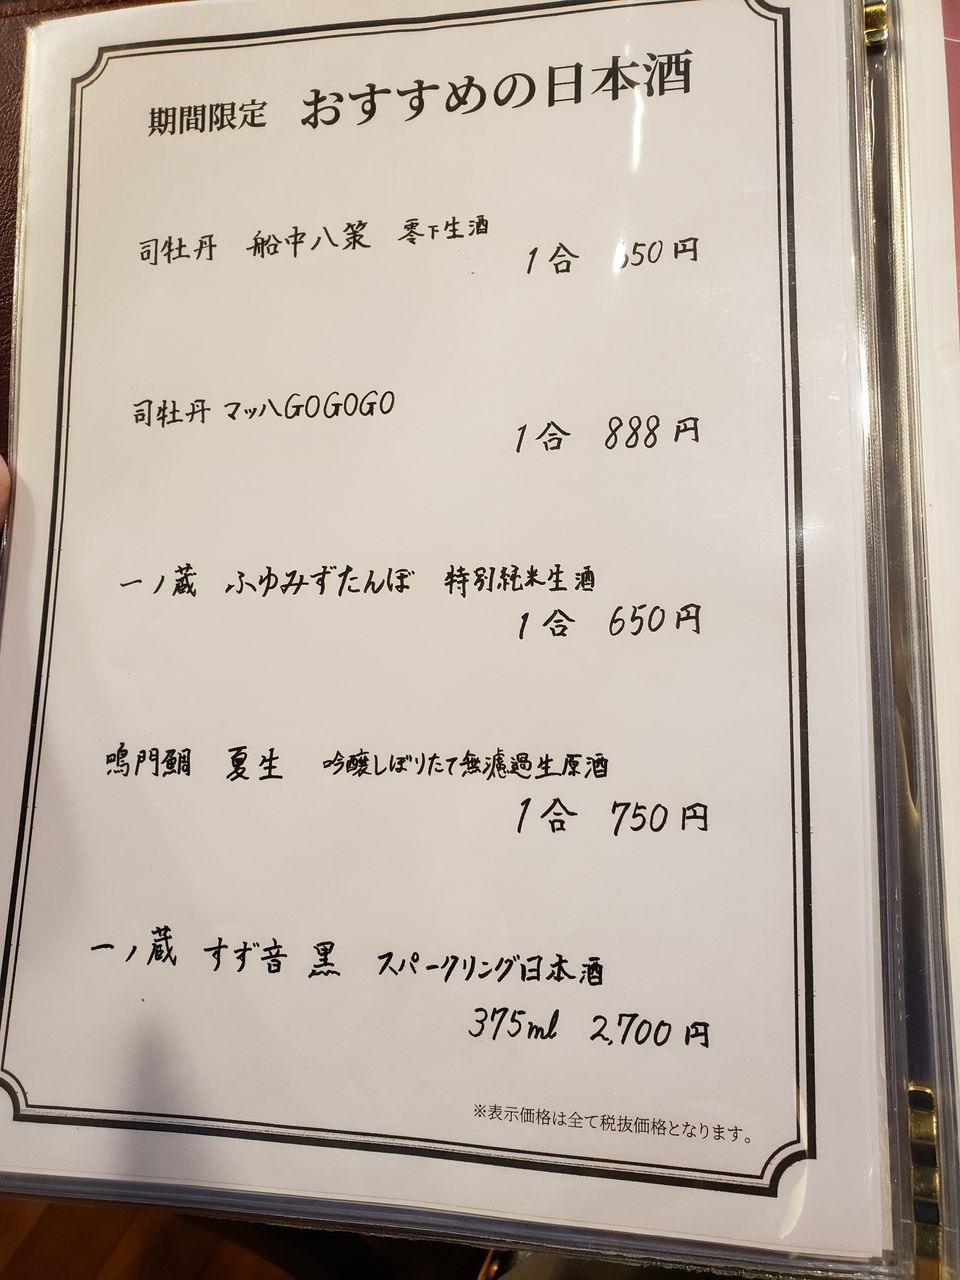 期間限定 おすすめの日本酒
司牡丹 船中八策 零下生酒
1合 50円
司牡丹 マッハGOGOGO
1合 888円
一ノ蔵 ふゆみずたんぼ 特別純米生酒
1合 650円
鳴門鯛 夏生 吟醸しぼりたて無濾過生原酒
1合 750円
一ノ蔵 すず音 黒 スパークリング日本酒
375ml 2,700円
※表示価格は全て税抜価格となります。